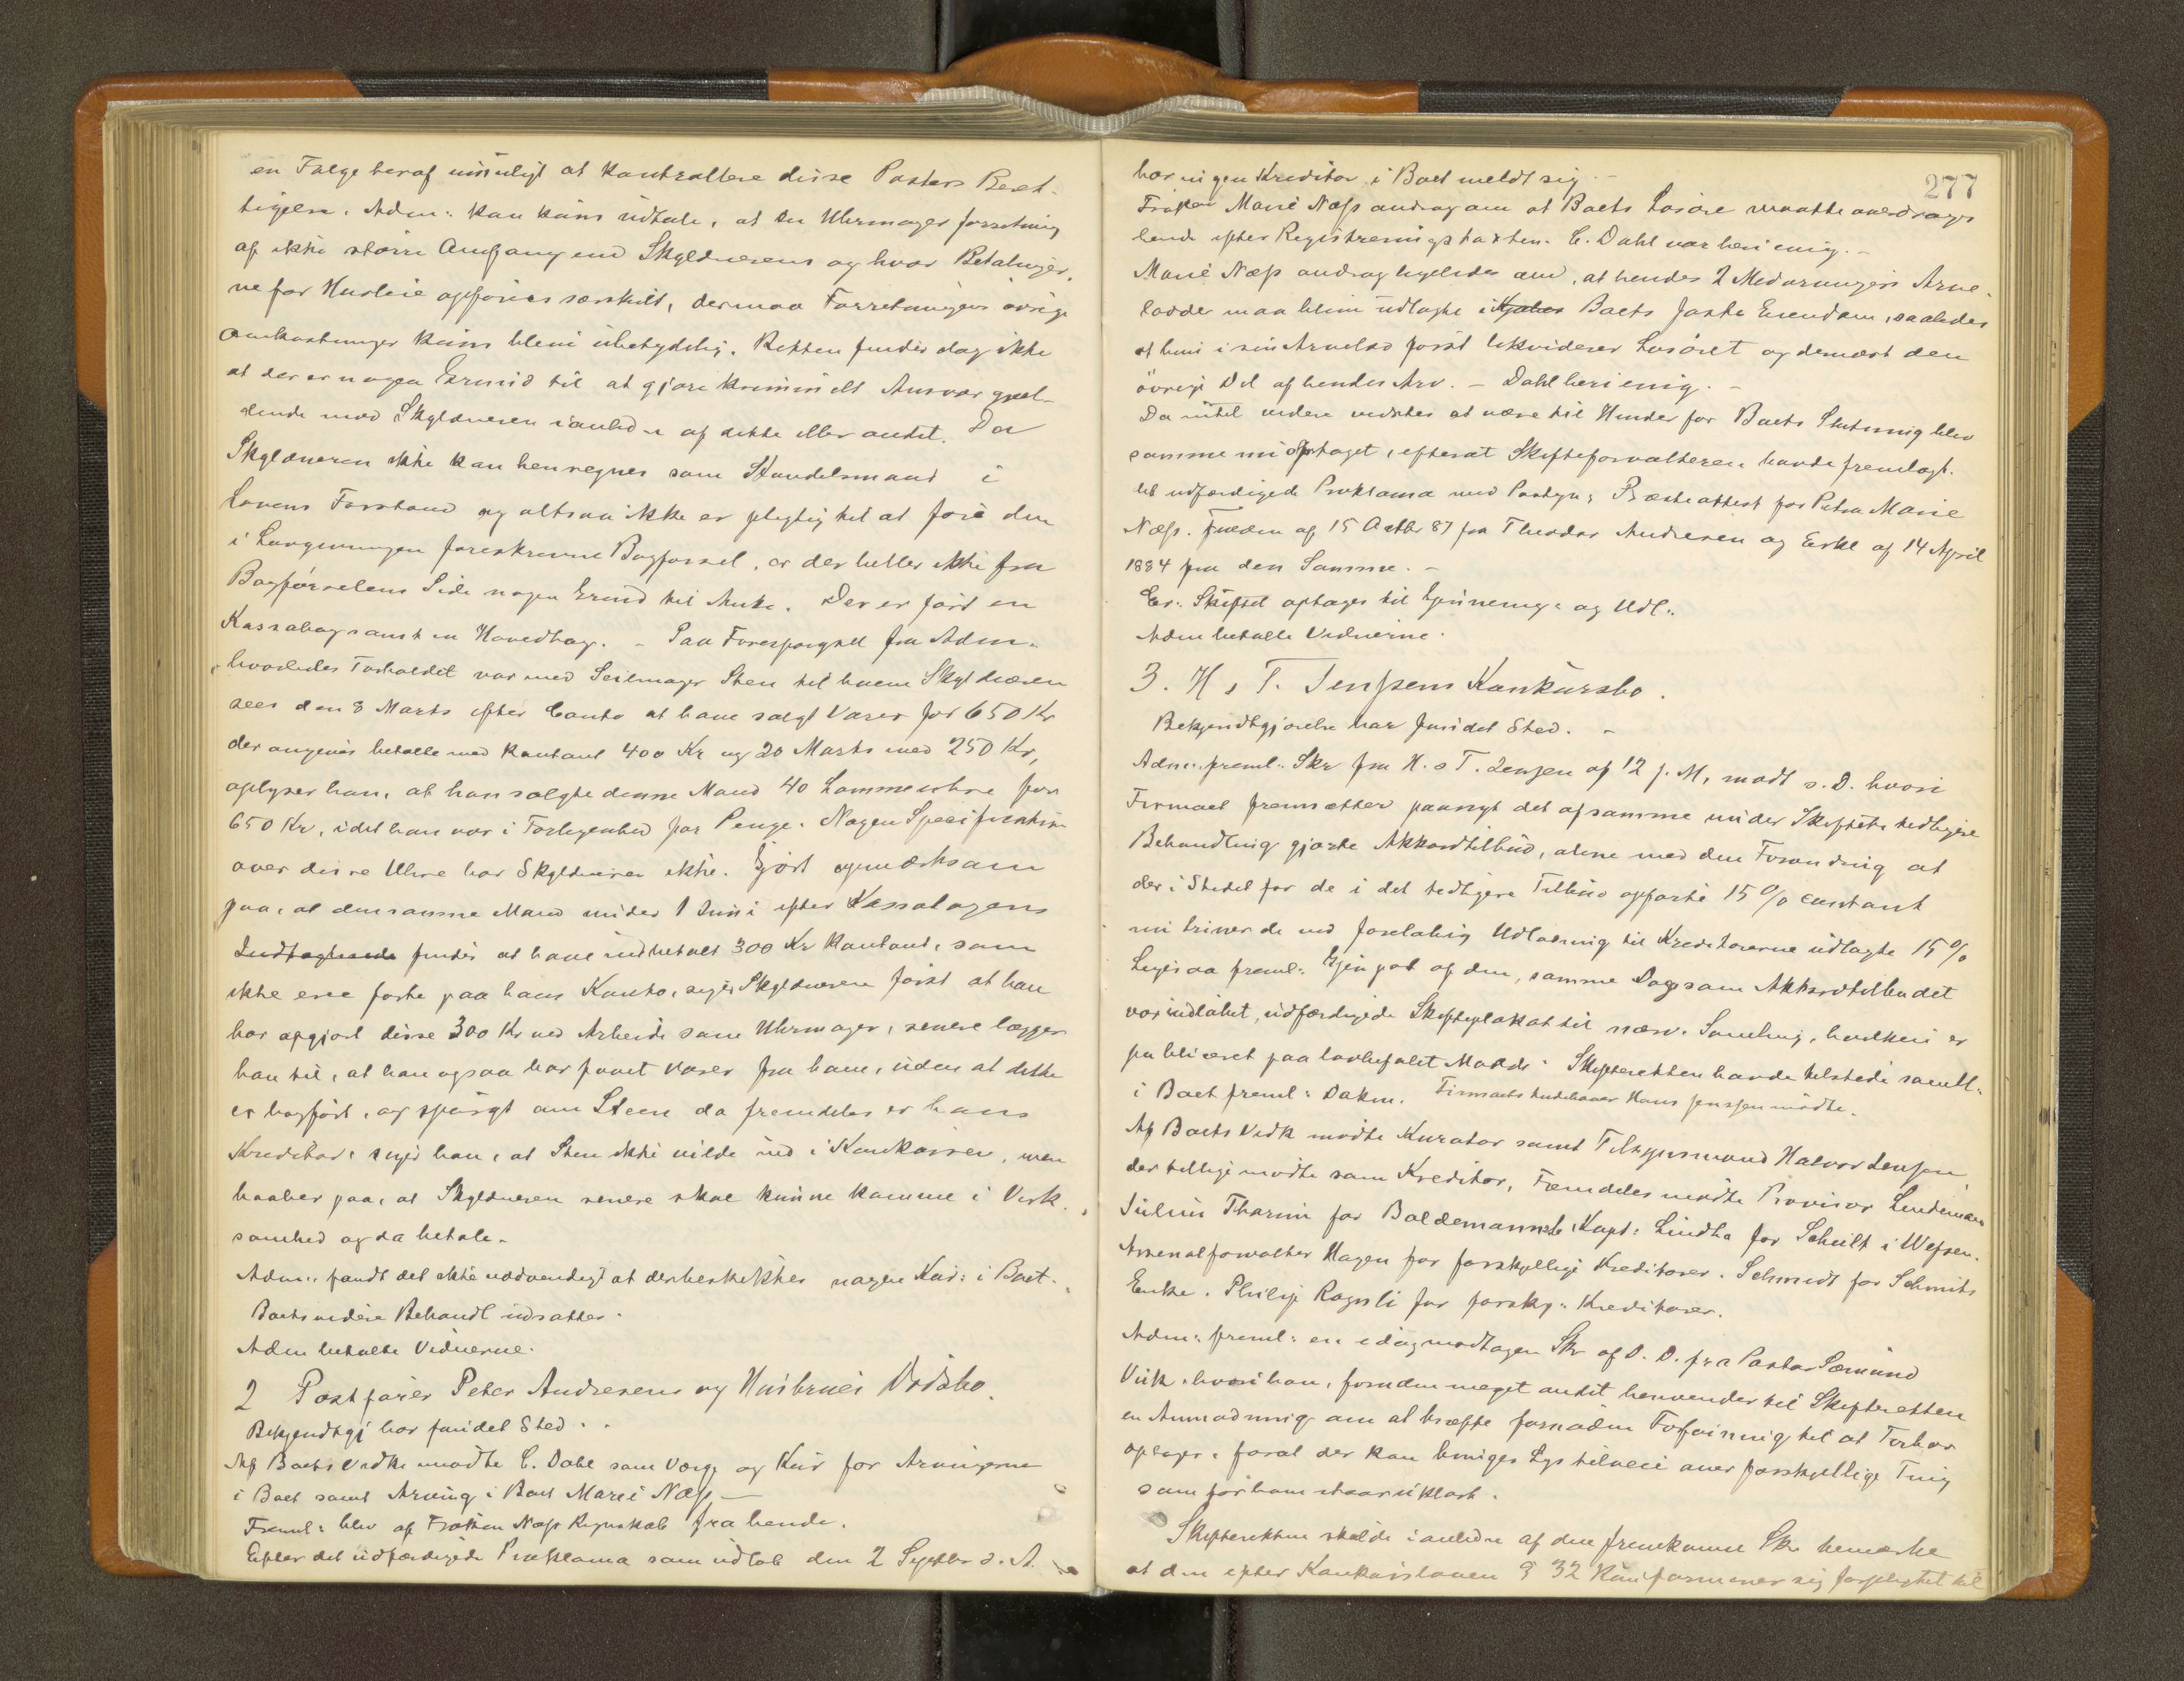 en Følge heraf umuligt at kontrollere disse Posters Beret-
tigelse. Adm: kan kuns udtale, at en Uhrmager forretning
af ikke større Omfang end Skyldnerens og hvor Betalinger-
ne for Husleie opføries særskilt, dermaa Forretningens øvrige
Omkostninger kuns bleve ubetydelig. Retten finder dog ikke
at der er nogen Grund til at gjøre kriminelt Ansvar gjæl-
dende mod Skyldneren i anledn af dette eller andet. Da
Skyldneren ikke kan henregnes som Handelsmand i
Lovens Forstand og altsaa ikke er pligtig til at føre den
i Lovgivningen foreskrevne Bogførsel, er der heller ikke fra
Bogførselens Side nogen Grund til Anke. Der er ført en
Kassabog samt en Hovedbog. - Paa Forespørgsel fra Adm:
hvorledes Forholdet var med Seilmager Steen til hvem Skyldneren
sees den 8 Marts efter Conto at have solgt Varer for 650 Kr
der angives betalte med kontant 400 Kr og 20 Marts med 250 Kr,
oplyser han, at han solgte denne Mand 40 Lommeuhre for
650 Kr, idet han var i Forlegenhed for Penge. Nogen Specifikation
over disse Uhre har Skyldneren ikke. Gjort opmærksom
paa, at den samme Mand under 1 Juni efter Kassabogens
Indtagtende findes at have indbetalt 300 Kr kontant, som
ikke ere førte paa hans Konto, siger Skyldneren først at han
har opgjort disse 300 Kr ved Arbeide som Uhrmager, senere lægger
han til, at han ogsaa har faaet Varer fra ham, uden at dette
er bogført, og spurgt om Steen da fremdeles er hans
Kreditor, siger han, at Steen ikke vilde ind i Konkursen, men
haaber paa, at Skyldneren senere skal kunne komme i Virk-
somhed og da betale.
Adm: fandt det ikke nødvendigt at der beskikkes nogen Kur: i Boet.
Boets videre Behandl udsattes.
Adm betalte Vidnerne.
2 Postfører Peter Andresens og Hustrues Dødsbo.
Bekjendtgj har fundet Sted.
Af Boets Vedk mødte C. Dahl som Værge og Kur for Arvingerne
i Boet samt Arving i Boet Marie Næss -
Freml: blev af Frøken Næss Regnskab fra hende.
Efter det udfærdigede Proklama som udløb den 2 Septbr d. A.
277
har ingen Kreditor i Boet meldt sig. -
Frøken Marie Næss androg om at Boets Løsøre maatte overdrages
hende efter Registreringstaxten. C. Dahl var heri enig. -
Marie Næss androg ligeledes om, at hendes 2 Medarvingers Arve-
lodder maa blive udlagte i Boets faste Eiendom, saaledes
at hun i sin Arvelod først likviderer Løsøret og dernæst den
øvrige Del af hendes Arv. - Dahl heri enig. -
Da intet videre vidstes at være til Hinder for Boets Slutning blev
samme nu optaget, efterat Skifteforvalteren havde fremlagt.
det udfærdigede Proklama med Paategn; Præsteattest for Petra Marie
Næss. Frieden af 15 Octbr 87 fra Theodor Andresen og Erkl af 14 April
1884 fra den Samme. -
Er: Skiftet optages til Gjennemg: og Udl:
Adm betalte Vidnerne.
3. H & T. Jenssens Konkursbo.
Bekjendtgjørelse har fundet Sted. -
Adm: freml: Skr fra H. & T. Jenssen af 12 f. M, modt s. D. hvori
Firmaet fremsætter paanyt det af samme under Skiftets tidligere
Behandling gjorte Akkordtilbud, alene med den Forandring at
der i Stedet for de i det tidligere Tilbud opførte 15 % contant
nu trives de ved foreløbig Udlodning til Kreditorerne udlagte 15 %
Ligesaa freml: Gjenpart af den, samme Dag som Akkordtilbudet
var indløbet, udfærdigede Skifteplakat til nærv. Samling, hvilken er
publiceret paa lovbefalet Maade. Skifteretten havde tilstede samtl:
i Boet freml: Dokm. Firmaets Indehaver Hans Jenssen mødte.
Af Boets Vedk mødte Kurator samt Tilsynsmand Halvor Jenssen,
der tillige mødte som Kreditor, Fremdeles mødte Provisor Lindeman
Julius Thorin for Boldemannsk, Kapt: Lindh for Schult i Wefsen.
Arsenalforvalter Hagen for forskjellige Kreditorer. Schmidt for Schmidts
Enke. Philip Rognli for forskj: Kreditorer.
Adm: freml: en idag modtagen Skr af D. D. fra Pastor Sæmund
Viik, hvori han, foruden meget andet henvender til Skifteretten
en Anmodning om at træffe fornøden Foføining til at Forhør
optages, forat der kan bringes Lys tilveie over forskjellige Ting
som for ham staar uklart.
Skifteretten skulde i anledn af den fremkomne Skr bemærke
at den efter Konkursloven § 32 kun formener sig forpligtet til